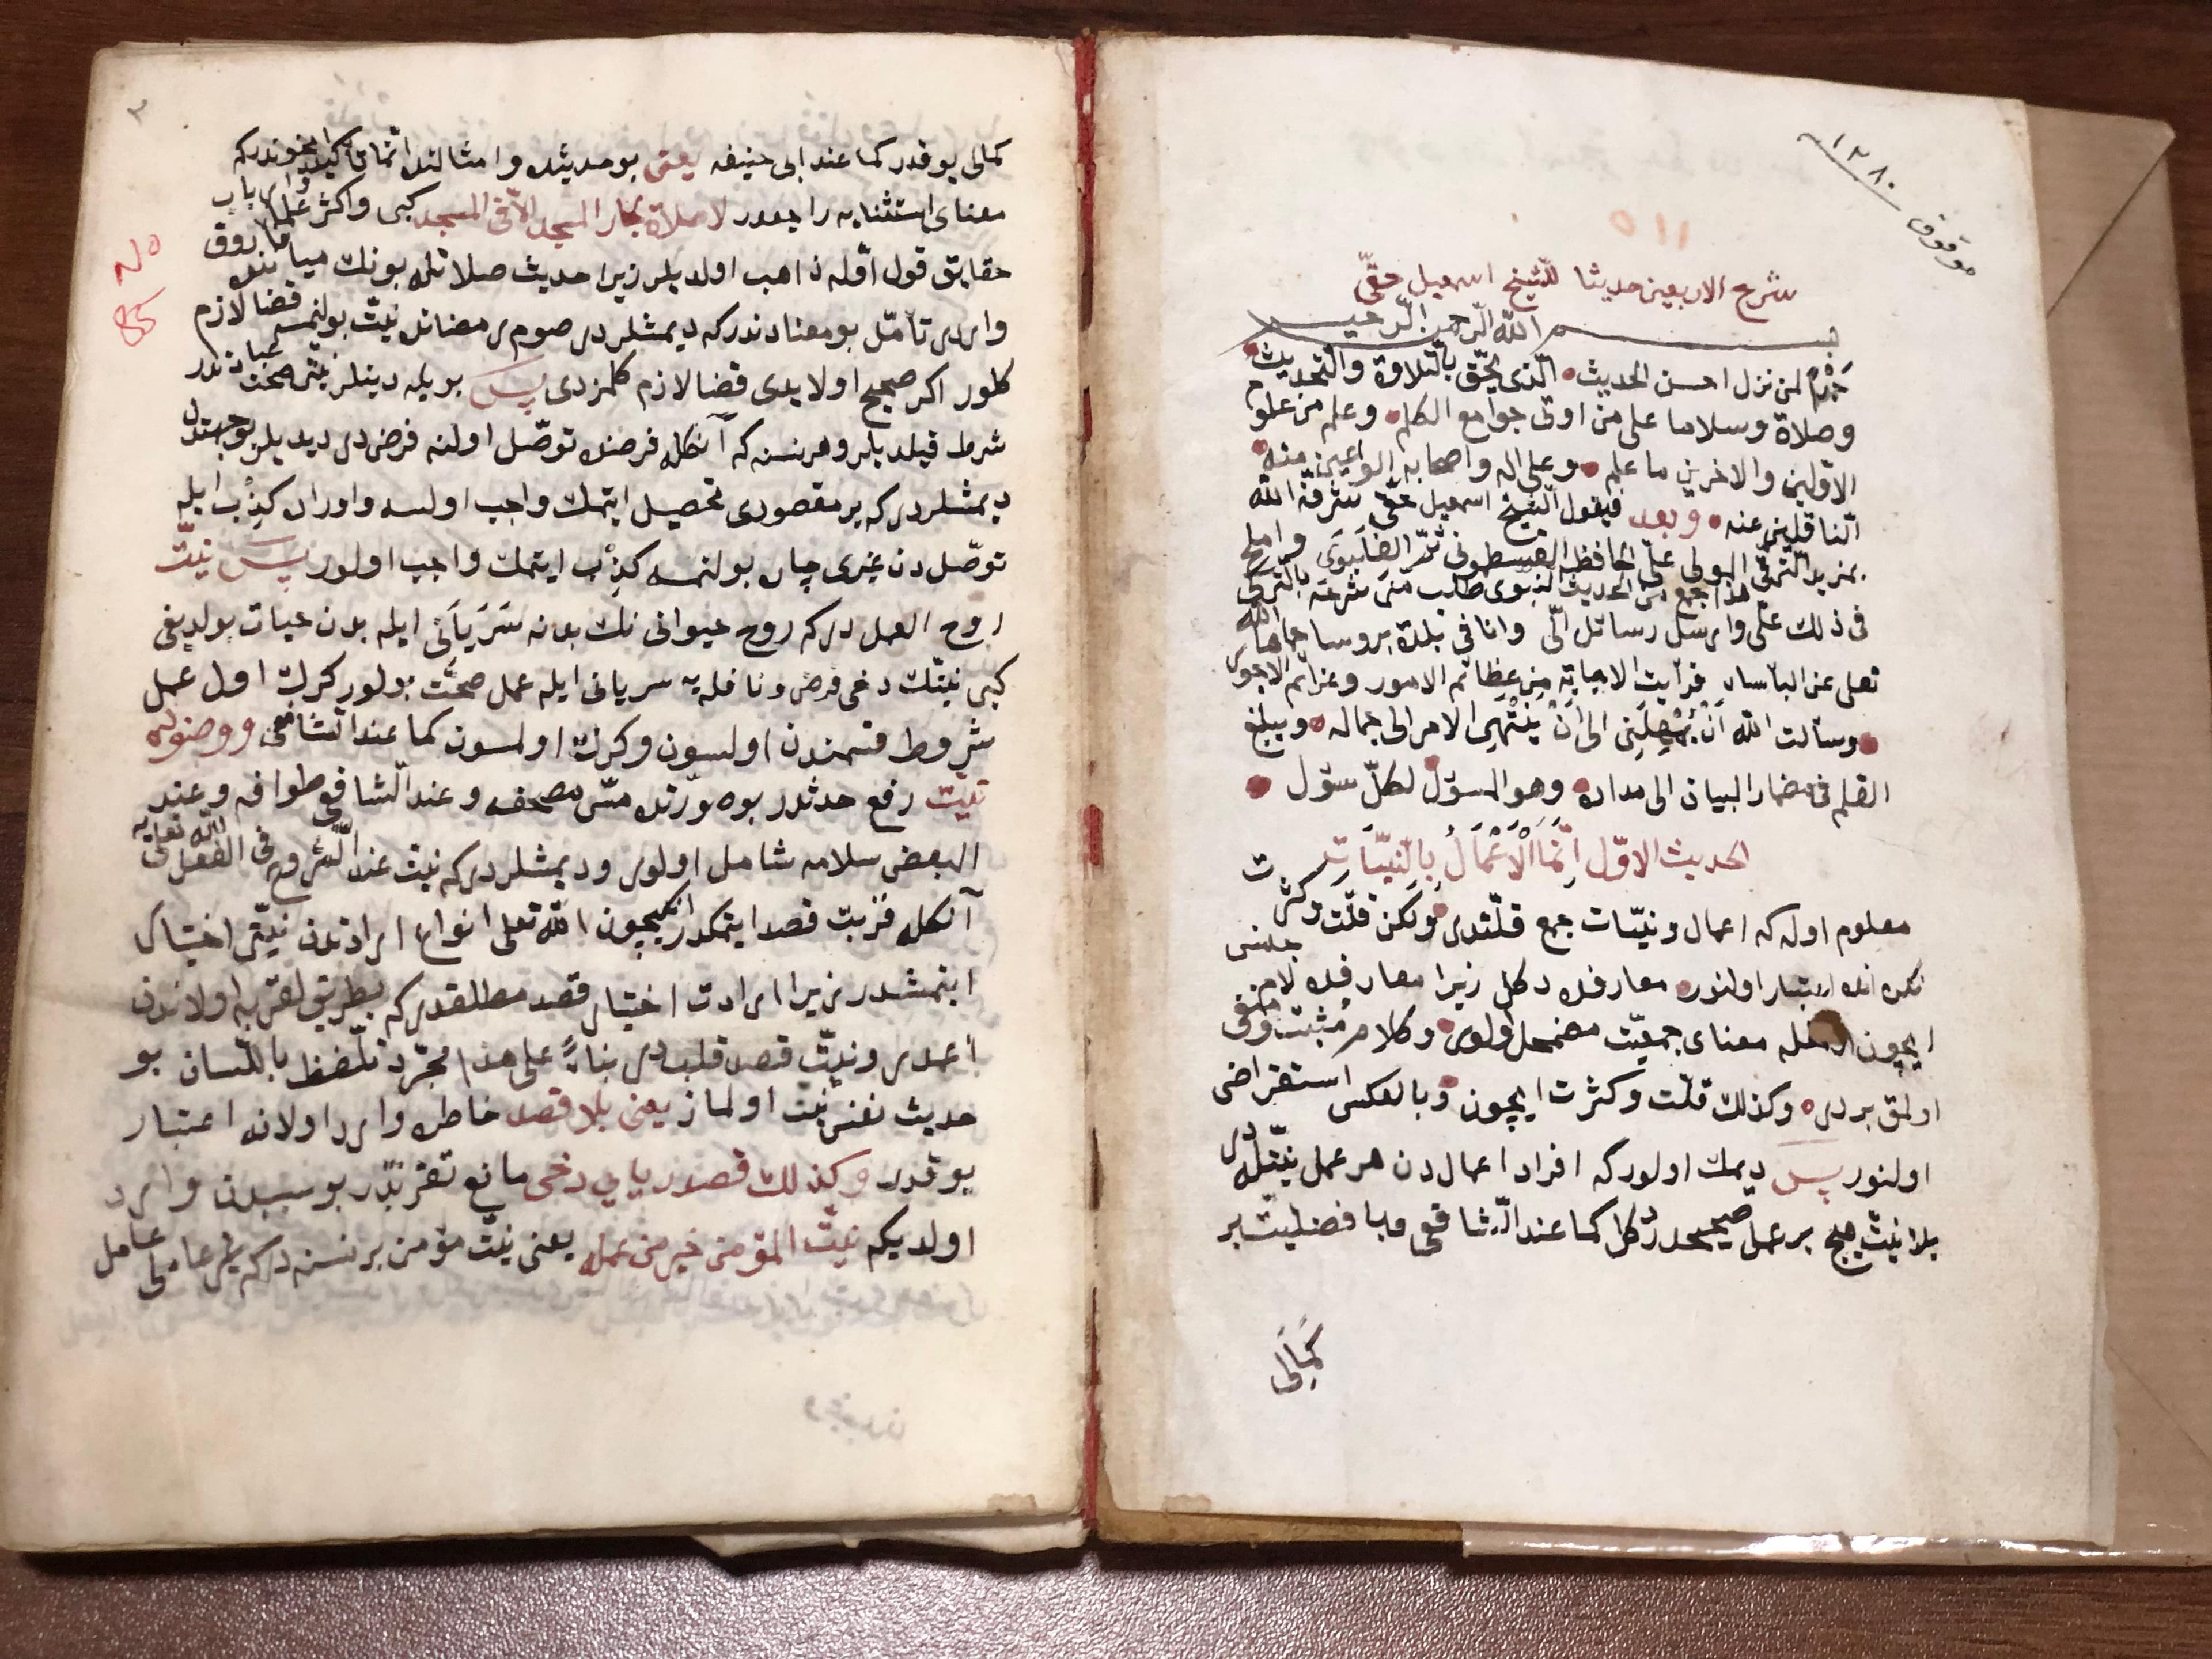 ١٢٨٠
موقوق
٥١١
شرح الاربعين حديثا للشيخ اسمعيل حقّى
بسم الله الرّحمن الرّحيم
حمدًا لمن نزل احسن الحديث • الّذى يحقّ بالتّلاوة والتّحديث •
وصلاة وسلاما على من اوتى جوامع الكلم • وعلم من علوم
الاوّلين والاخرين ما علم • وعلى اله واصحابه الواعين منه •
النّاقلين عنه • وبعد فيقول الشّيخ اسمعيل حقّى شرفه الله
بمزيد التّرقّى الىولى على الحافظ القسطمونى ثمّ
هذا جمع من الحديث النّبوى طلب منّى شرحه بالتّركى
فى ذلك علىّ وارسل رسائل الىّ وانا فى بلدة بروسا حاها الله
تعلى عن الباساء فرأيت الاجابة من عظائم الامور وعزائم الاجور
• وسألت الله اَنْ يُمْهِلَنِى الى اَنْ يَنْتَهِىَ الامر الى جماله • ويبلغ
القلم فى مضمار البيان الى مداره • وهو المسؤل لكلّ سؤل •
الحديث الاوّل اِنَّمَا الْاَعْمَالُ بِالنِّيَّاتِ
معلوم اوله كه اعمال ونيّات جمع قلّتدر • ولكن قلّت وكثرت
نكره ده اعتبار اولنور • معارفده دكل زيرا معارفده لام جنس
ايچون اولمغله معناى جمعيّت مضمحل اولور • وكلام مُثبت ومنفى
اولمق بردر • وكذلك قلّت وكثرت ايچون • وبالعكس استقراضى
اولنور پس ديمك اولوركه افراد اعمال دن هر عمل نيّتله در
بلا نيّت هيچ بر عمل صحيح دكلدر كما عند الشّافعى ويا فضيلت بر
كَمَالِى
٢
No
85
كمالى يوقدر كما عند ابى حنيفه يعنى بو حديثده وامثالنده انّما تأكيد ايچوندركه
معناى استثنايه راجعدر لا صلاة لجار المسجد الّا فى المسجد كبى واكثر علما وارباب
حقايق قول اوّله ذاهب اولديلر زيرا حديث صلاتله بونك مياننده فاروق
واردر تأمّل بو معنادندركه ديمشلردر صوم رمضانده نيّت بولنمسه قضا لازم
كلور اكر صحيح اولايدى قضا لازم كلمزدى پس بويله دينلر نيّتى صحّت عباداتدر
شرط قيلديلر وهر نسنه كه آنكله فرضه توصّل اولنه فرض در ديديلر بو جهتدن
ديمشلردركه بر مقصودى تحصيل ايتمك واجب اولسه واوراد كذِب ايله
توصّل دن غيرى چاره بولنمسه كذِب ايتمك واجب اولور پس نيّت
روح العمل دركه روح حيوانى نك بدنه سَرَيَانى ايله بدن حيات بولديغى
كبى نيّتك دخى فرض ونافله يه سريانى ايله عمل صحّت بولور كرك اول عمل
شروط قسمندن اولسون وكرك اولمسون كما عند الشّافعى ووضوده
نيّت رفع حدثدر بو صورتده مسّ مصحفه وعند الشّافعى طوافه وعند
البعض سلامه شامل اولور وديمشلردركه نيّت عند الشّروع فى الفعل الله تعالى يه
آنكله قربت قصد ايتمكدر انكيچون الله تعلى انواع اراداتدن نيّتى اختيار
ايتمشدر زيرا ارادت اختيار قصد مطلقدركه بطريق القربه اولاندن
اعمدر ونيّت قصد قلبدر بناءً على هذا مجرّد تلفّظ باللّسان بو
حديث نفس نيّت اولماز يعنى بلا قصد خاطره وارد اولانه اعتبار
يوقدر وكذلك قصد ريايى دخى مانع تقرّبدر بو سببدن وارد
اولديكم نيّت المؤمن خير من عمله يعنى نيّت مؤمن بر نسنه دركه عاملى عامل